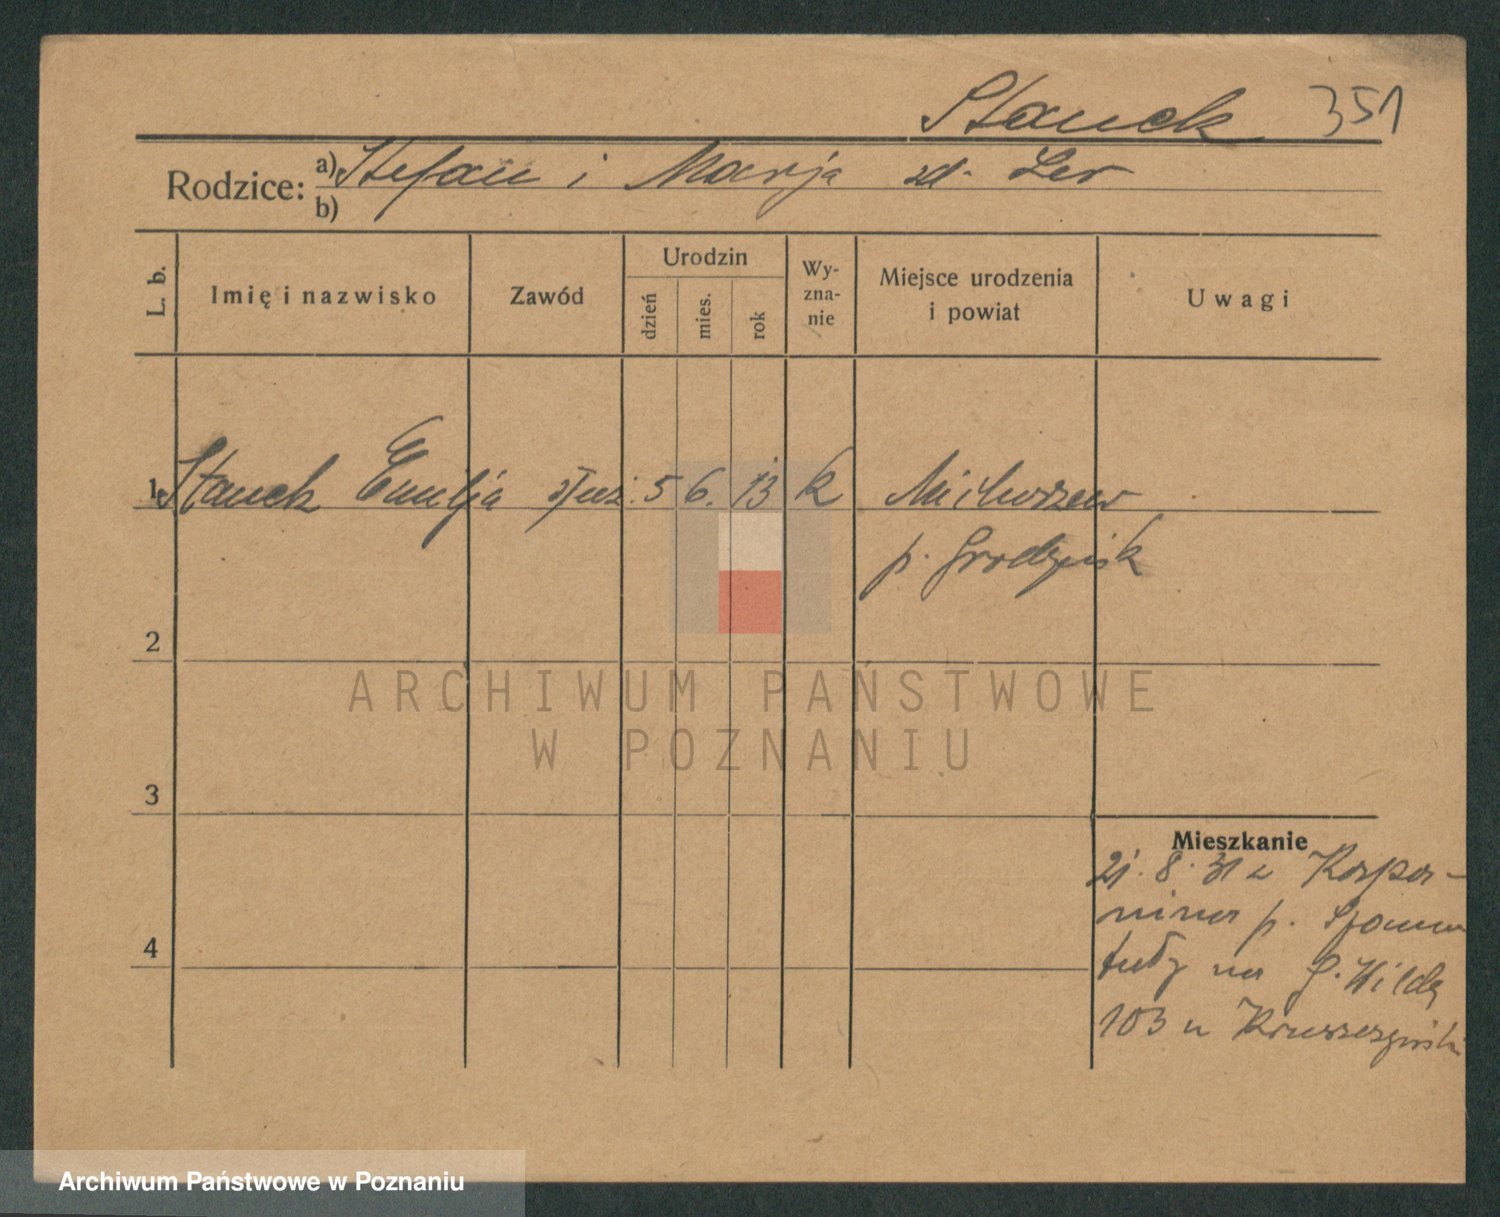 Stanek 351
Rodzice: a) Stefan i Marja zd. Ler
b)
L. b. Imię i nazwisko Zawód Urodzin dzień mies. rok Wyznanie Miejsce urodzenia i powiat Uwagi
1 Stanek Emilja służ. 5 6. 13 k
p. Grodzisk
2
ARCHIWUM PAŃSTWOWE
W POZNANIU
3
Mieszkanie
21. 8. 31 z Kaspa-
p. Szamo
tuły na G. Wilda
103 u
4
Archiwum Państwowe w Poznaniu